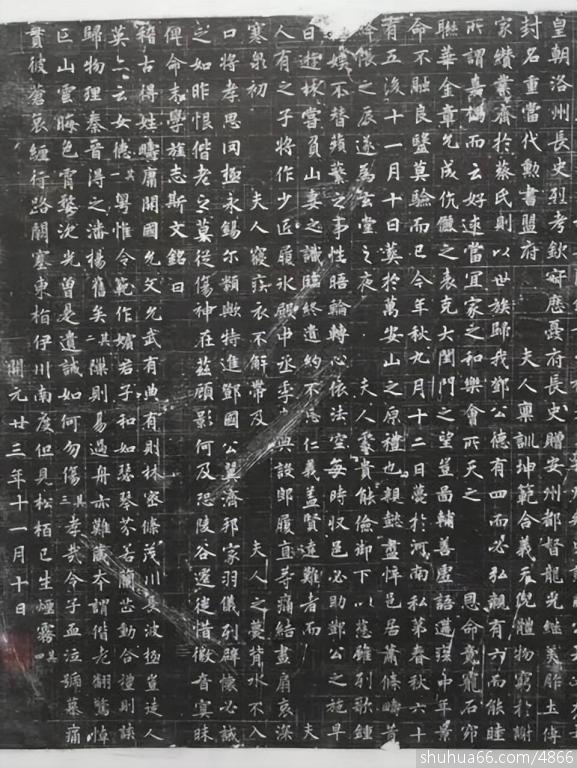 皇朝洛州長史烈考欽寂應憂府長史贈安州都督龍光繼美胙土傳
封名重當代勲書盟府 夫人稟訓坤範合義天倪體物窮於謝
家纘業齊於蔡氏則以世族歸我鄧公德有四而必弘親有六而能睦
所謂嘉 而云好逑當宜家之和樂會所天之 恩命竟寵石窌
聯華金章允成伉儷之表克大閨門之望豈啚輔善虛語遘 中年景
命不融良豎莫驗而已今年秋九月十二日薨於河南私第春秋六十
有五後十一月十日 於萬安山之原禮也親懿盡悴邑居蕭條疇昔
帳之辰遂為玄堂之夜 夫人處貴能儉御下以慈雖列歌鍾
不替蘋蘩之事性晤輪轉心依法空每時收邑必助鄧公之施早
日 嘗負山妻之識臨終遺約不忘仁義蓋賢達難者而 夫
人有之子將作少匠履冰殿中丞季 與設郎履直等痛結晝扃哀深
寒泉初 夫人寢疾衣不解帶及 夫人之薨背水不入
口將孝思罔極永錫尓類歟特進鄧國公翼濟邦家羽儀列辟懷必誠
之如昨恨偕老之莫從傷神在茲顧影何及恐陵谷遷徙惜徽音寘昧
俾命末學旌志斯文銘曰
稽古得姓疇庸開國允文允武有典有則林密條茂川長波極豈逹人
莫云云女德其一 粤惟令範作嬪君子和如瑟琴芬若蘭芷動合禮則談
歸物理秦晉得之潘楊舊矣其二 隟則易過舟亦難藏夲謂偕老翻驚悼
亡山雲晦色霄婺沈光曽是遺誡如何勿傷其三 孝哉令子血泣號慕痛
貫彼蒼哀纏行路關塞東指伊川南度但見松栢已生煙霧其四
開元廿三年十一月十日
shuhua66.com/4866